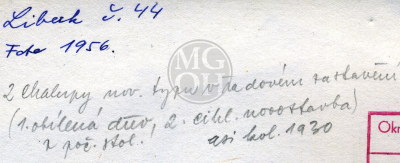 Libek č. 44
Foto 1956.
MG
OH
2 chalupy nov. typu v řadovém zastavění
(1. obílená dřev, 2. cihl. novostavba)
z poč. stol. asi kol. 1930
Okr